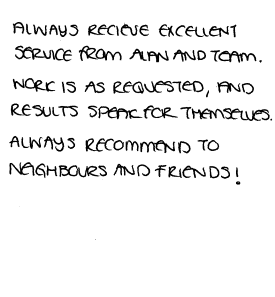 ALWAYS RECIEVE EXCELLENT
SERVICE FROM ALAN AND TEAM.
WORK IS AS REQUESTED, AND
RESULTS SPEAK FOR THEMSELVES.
ALWAYS RECOMMEND TO
NEIGHBOURS AND FRIENDS!